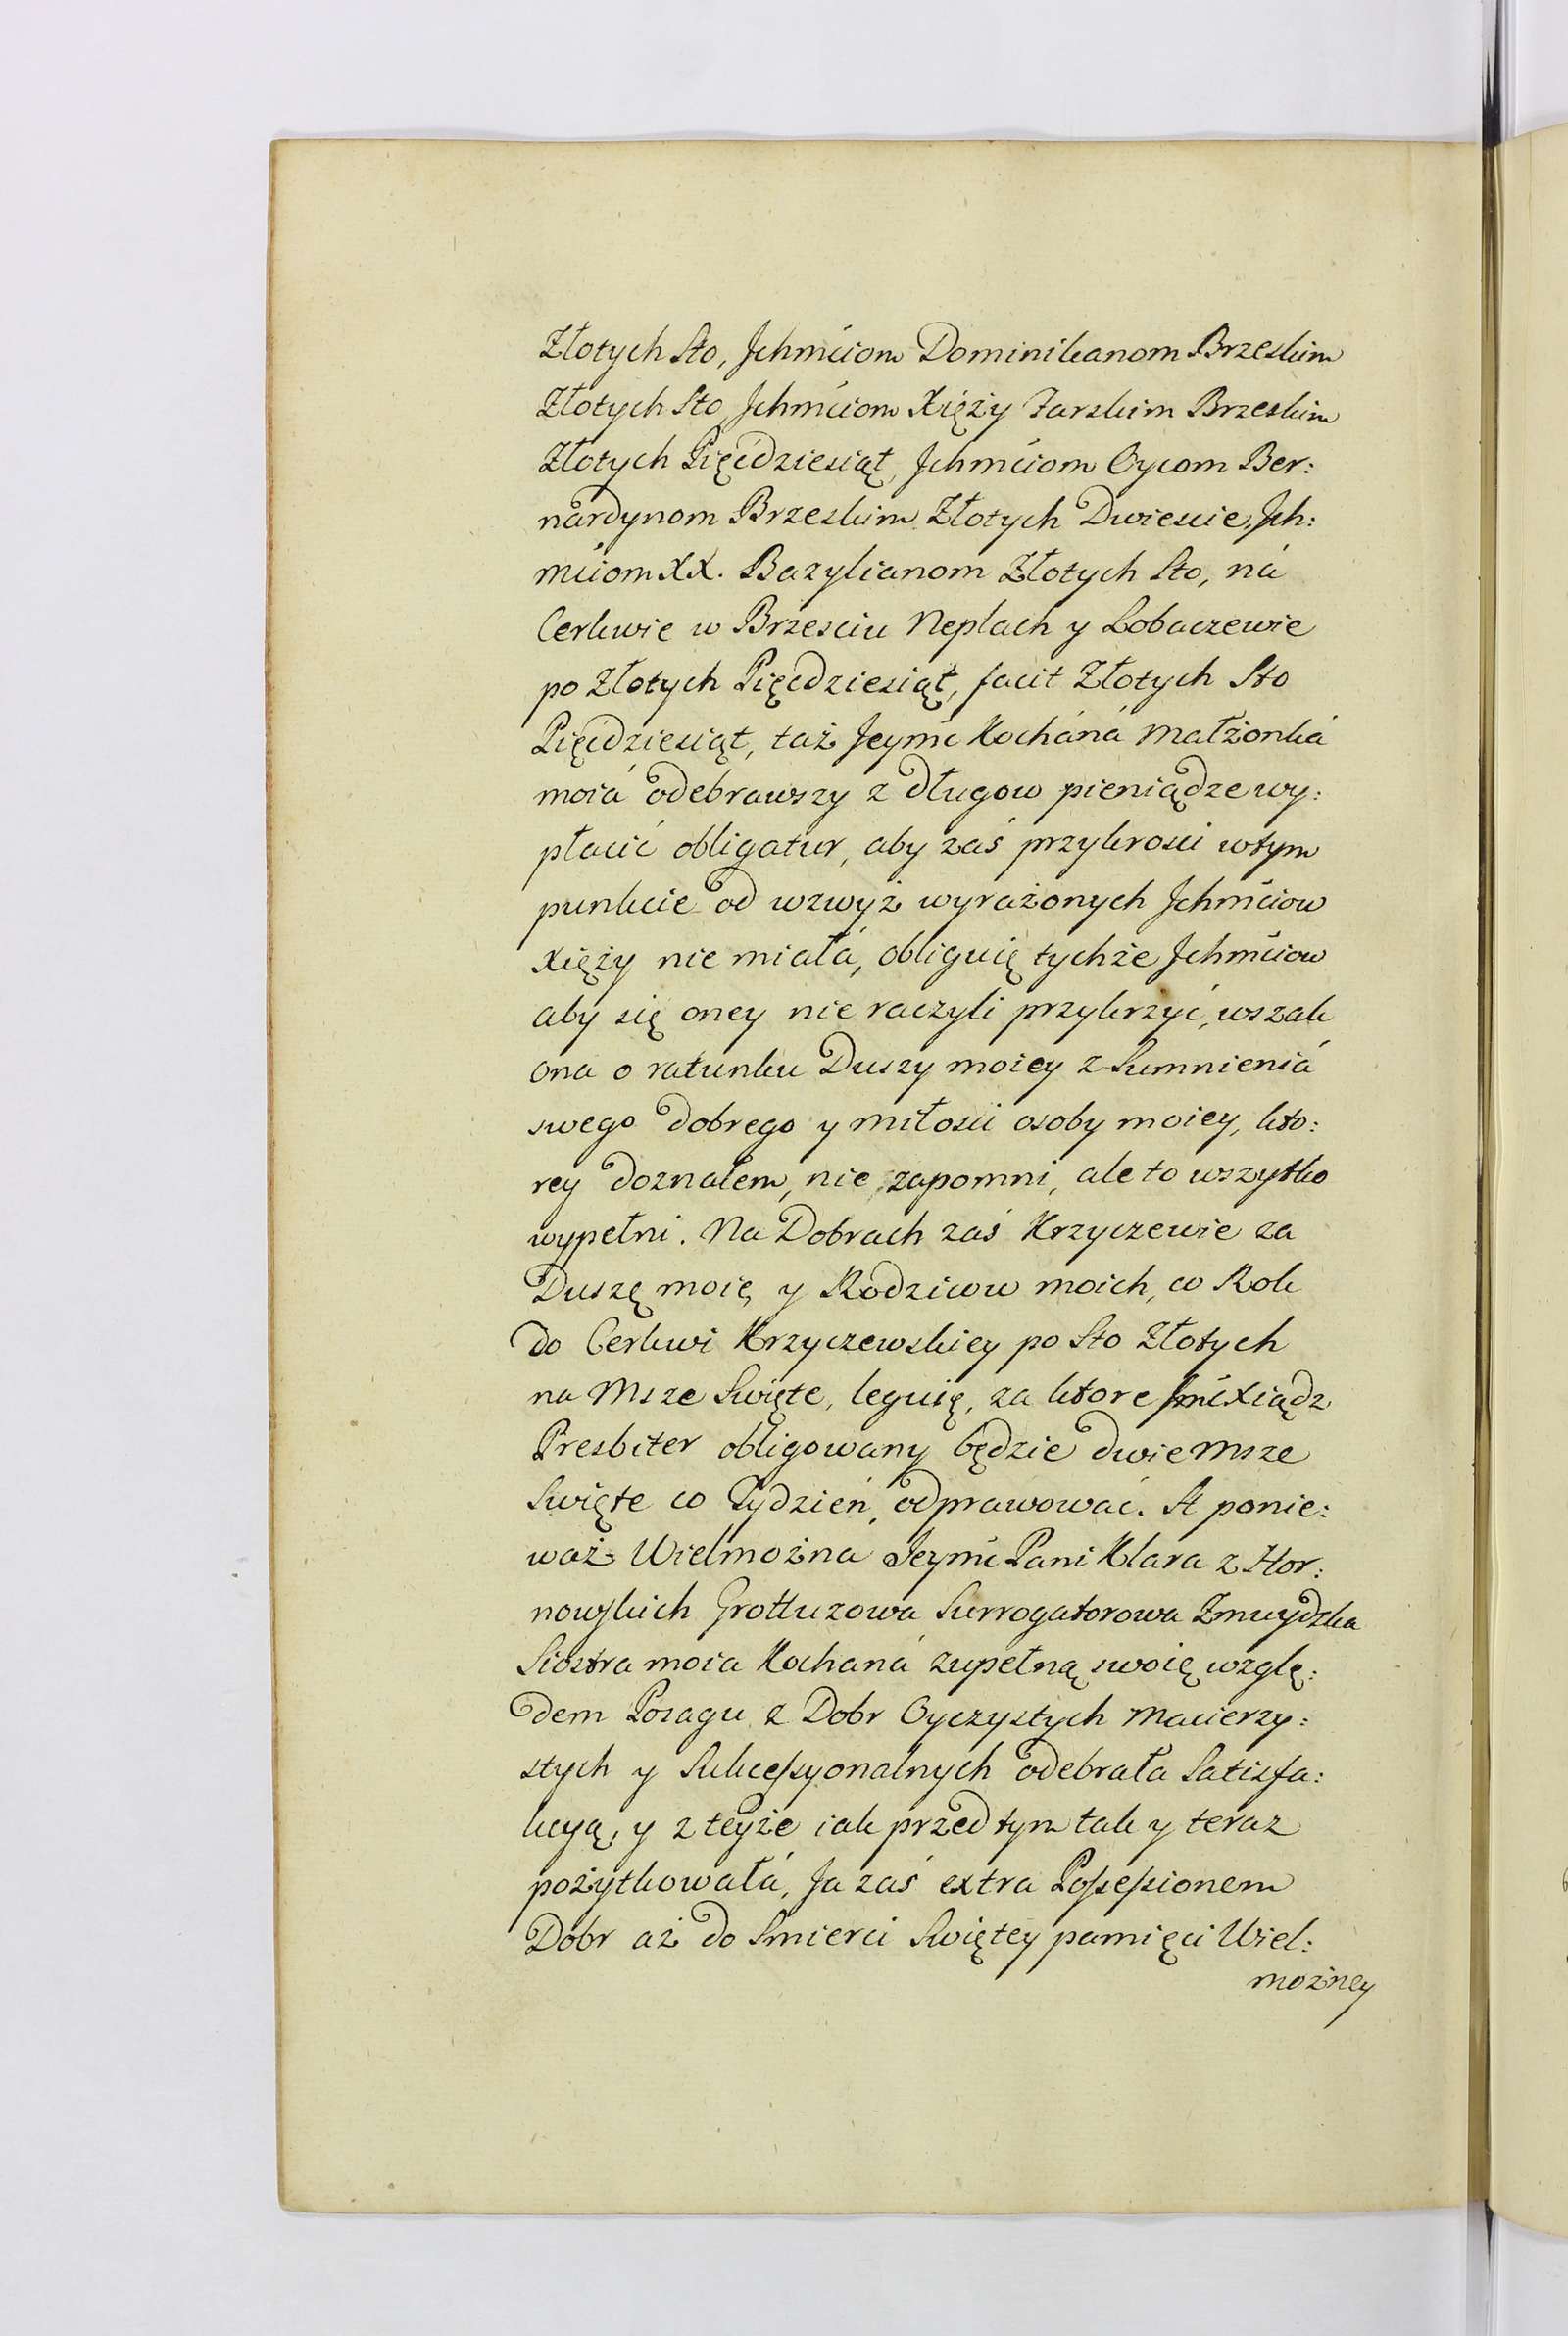 Złotych Sto, Jchmciom Dominikanom Brzeskim
Złotych Sto, Jchmciom Xięży Farskim Brzeskim
Złotych Pięćdziesiąt, Jchmciom Oycom Ber:
nardynom Brzeskim Złotych Dwiescie, Jch:
mciom XX. Bazylianom Złotych Sto, ná
Cerkwie w Brzesciu Neplach y Lobaczewie
po Złotych Pięcdziesiąt, facit Złotych Sto
Pięćdziesiąt, taż Jeymć Kocháná Małżonká
moiá odebrawszy z długow pieniądze wy:
płacić obligatur, aby zaś przykrosci wtym
punkcie od wzwyż wyrażonych Jchmciow
Xięży nie miałá, obliguię tychże Jchmciow
aby się oney nie raczyli przykrzyć, wszak
ona o ratunku Duszy moiey z Sumnieniá
swego dobrego y miłosci osoby moiey, kto:
rey doznałem, nie zapomni, ale to wszytko
wypełni. Na Dobrach zaś Krzyczewie za
Duszę moię y Rodzicow moich, co Rok
do Cerkwi Krzyczewskiey po Sto Złotych
na Msze Swięte, leguię, za ktore Jmć Xiądz
Presbiter obligowany będzie dwie Msze
Swięte co Tydzień odprawować. A ponie:
waż Wielmożna Jeymć Pani Klara z Hor:
nowskich Grottuzowa Surrogatorowa Zmuydzka
Siostra moia Kochaná zupełną swoię wzglę:
dem Posagu z Dobr Oyczystych Macierzy:
stych y Sukcessyonalnych odebrała Satisfa:
kcyą, y z teyże iak przedtym tak y teraz
pożytkowałá, Ja zaś extra Possessionem
Dobr aż do Smierci Swiętey pamięci Wiel:
możney